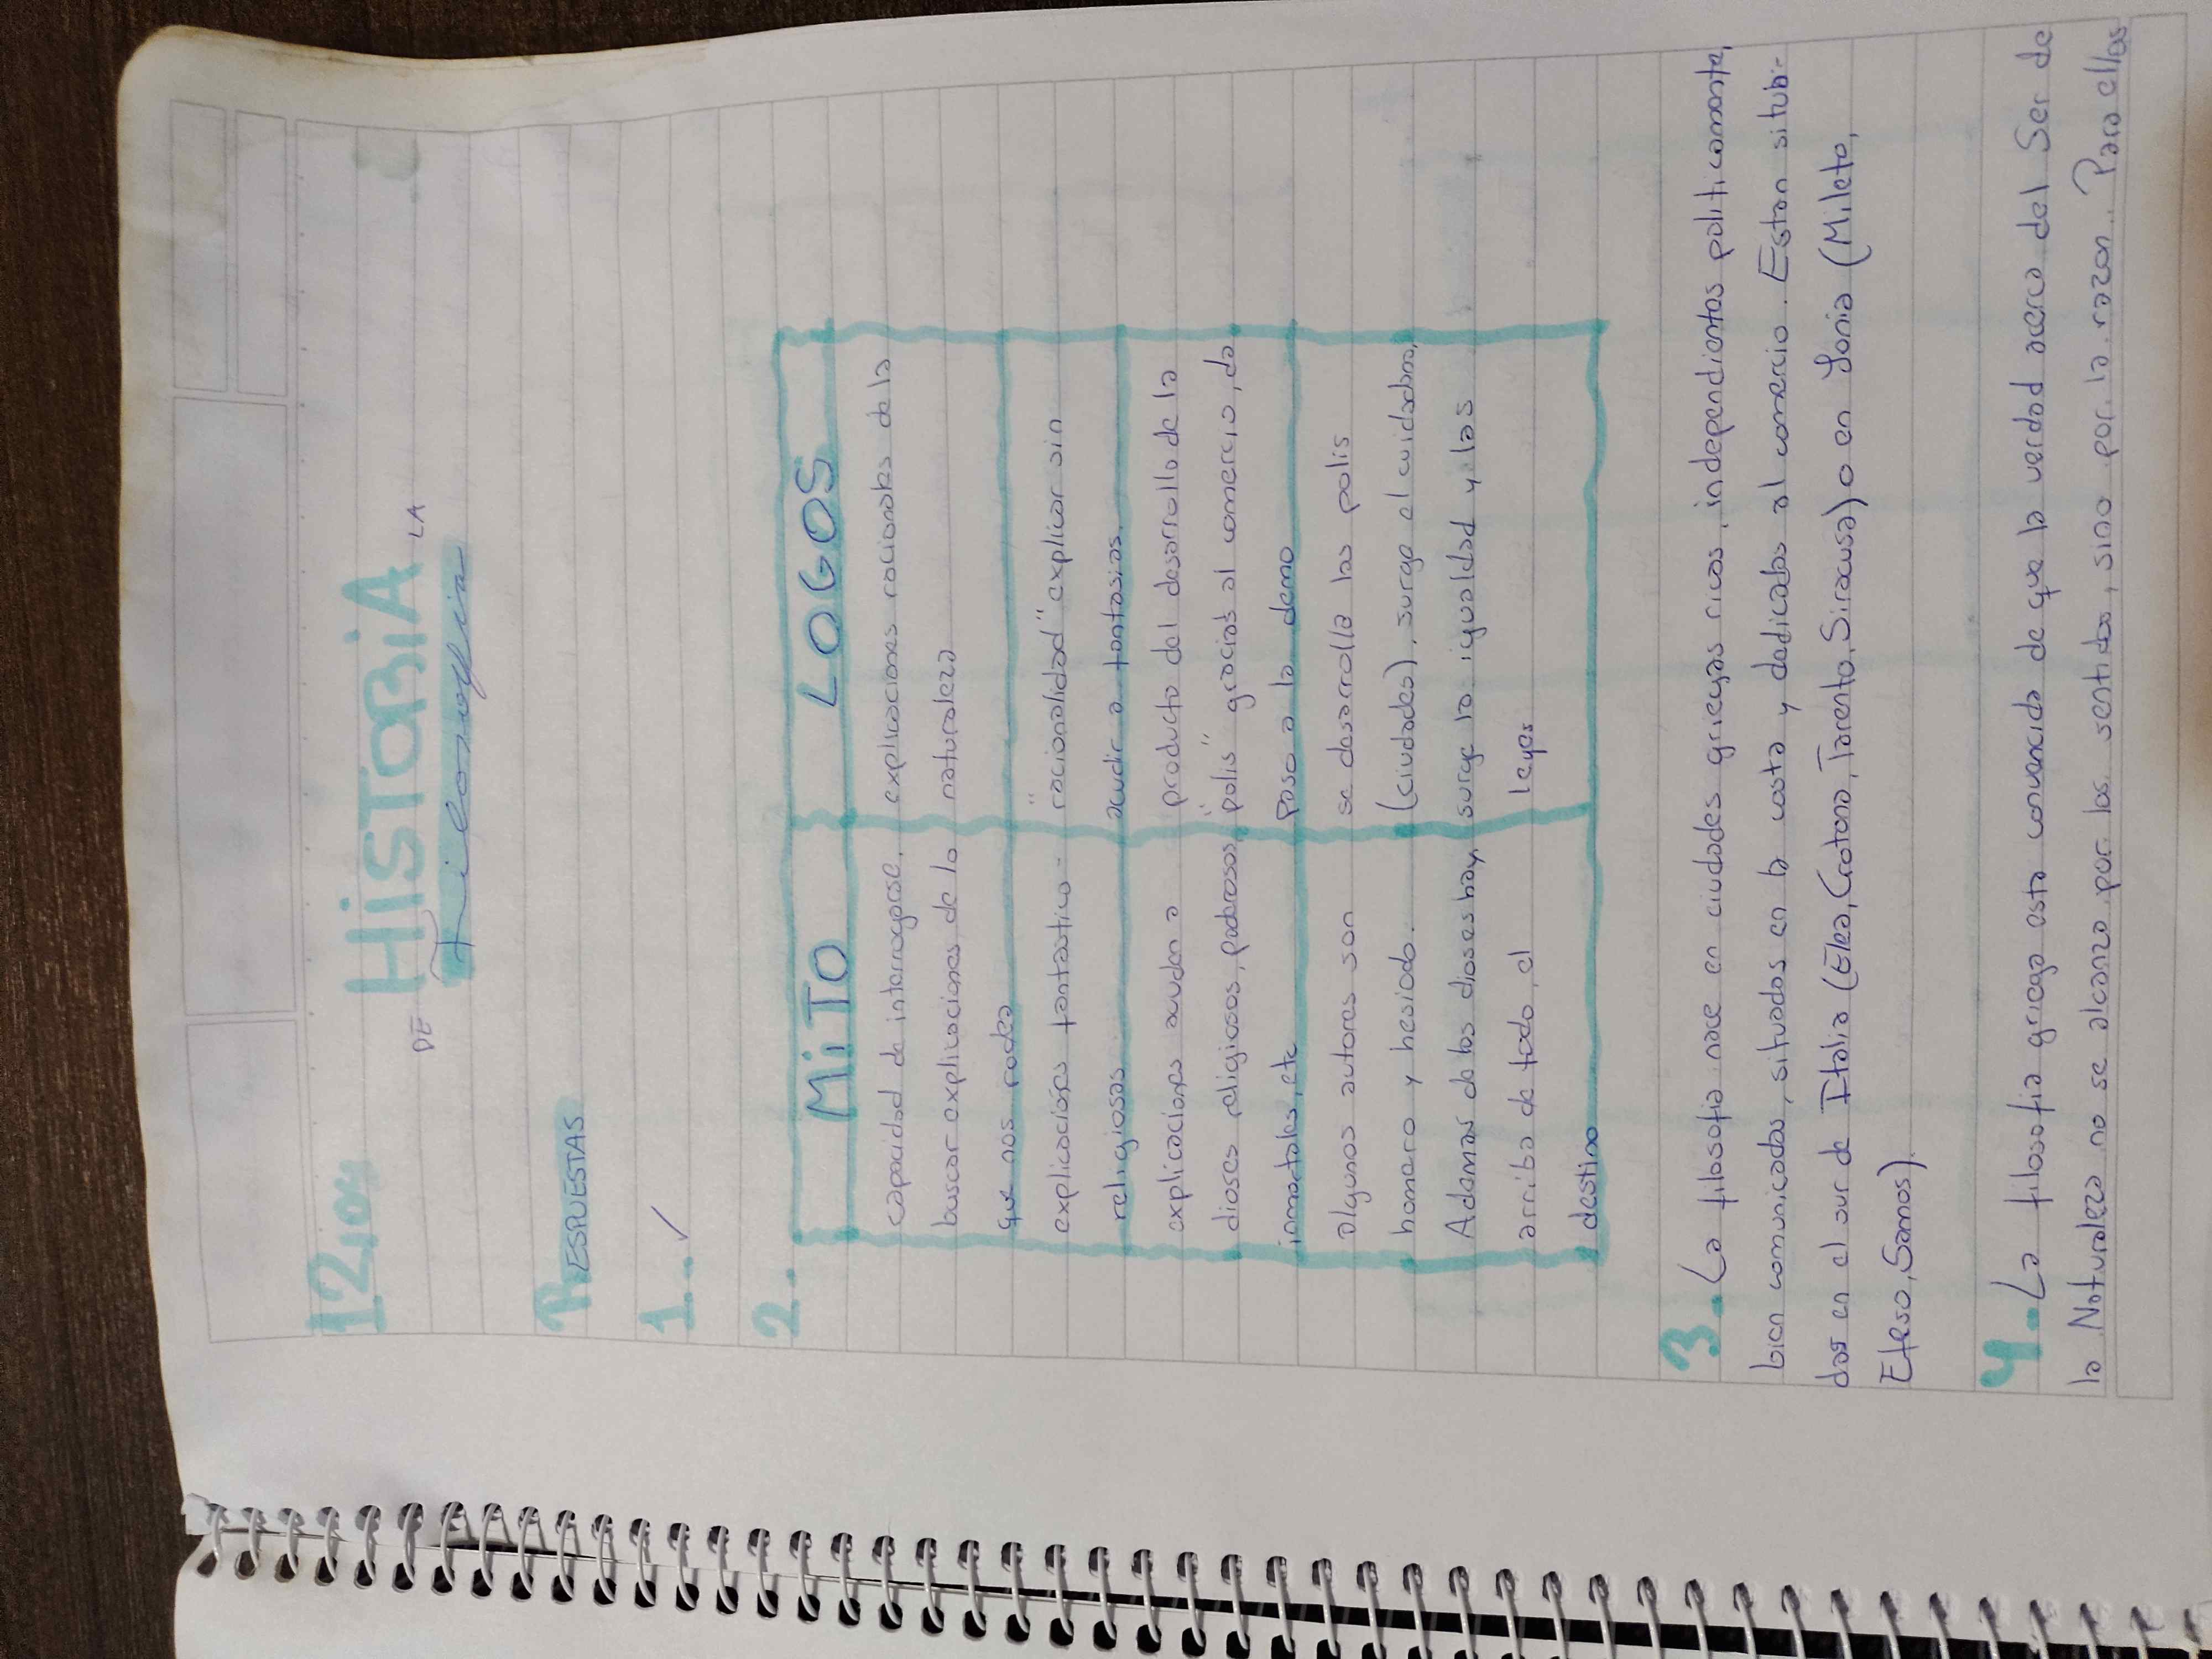 12/04 HiSTORiA
DE LA
filosofia
RESPUESTAS
1. ✓
2.
MiTO
LOGOS
capacidad de interrogarse,
buscar explicaciones de lo
que nos rodea
explicaciones racionales de la
naturaleza
explicaciones fantastico -
religiosas
"racionalidad" explicar sin
acudir a fantasias.
explicaciones acuden a
dioses religiosos, poderosos,
inmortales, etc
producto del desarrollo de la
"polis" gracias al comercio, da
paso a la demo
algunos autores son
homero y hesiodo.
se desarrolla las polis
(ciudades), surge el cuidadano,
Ademas de los dioses hay,
arriba de todo, el
destino
surge la igualdad y las
leyes
3. La filosofia nace en ciudades griegas ricas, independientes politicamente,
bien comunicadas, situadas en la costa y dedicadas al comercio. Estan situbi-
das en el sur de Italia (Elea, Crotona, Tarento, Siracusa) o en Jonia (Mileto,
Efeso, Samos).
4. La filosofia griega esta convencida de que la verdad acerca del Ser de
la Naturaleza no se alcanza por los sentidos, sino por la razon. Para ellos